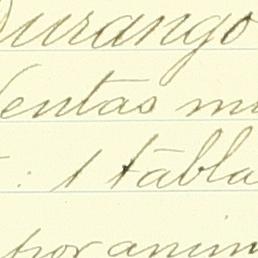 Durango
Ventas mu
: 1 tabla
por anim